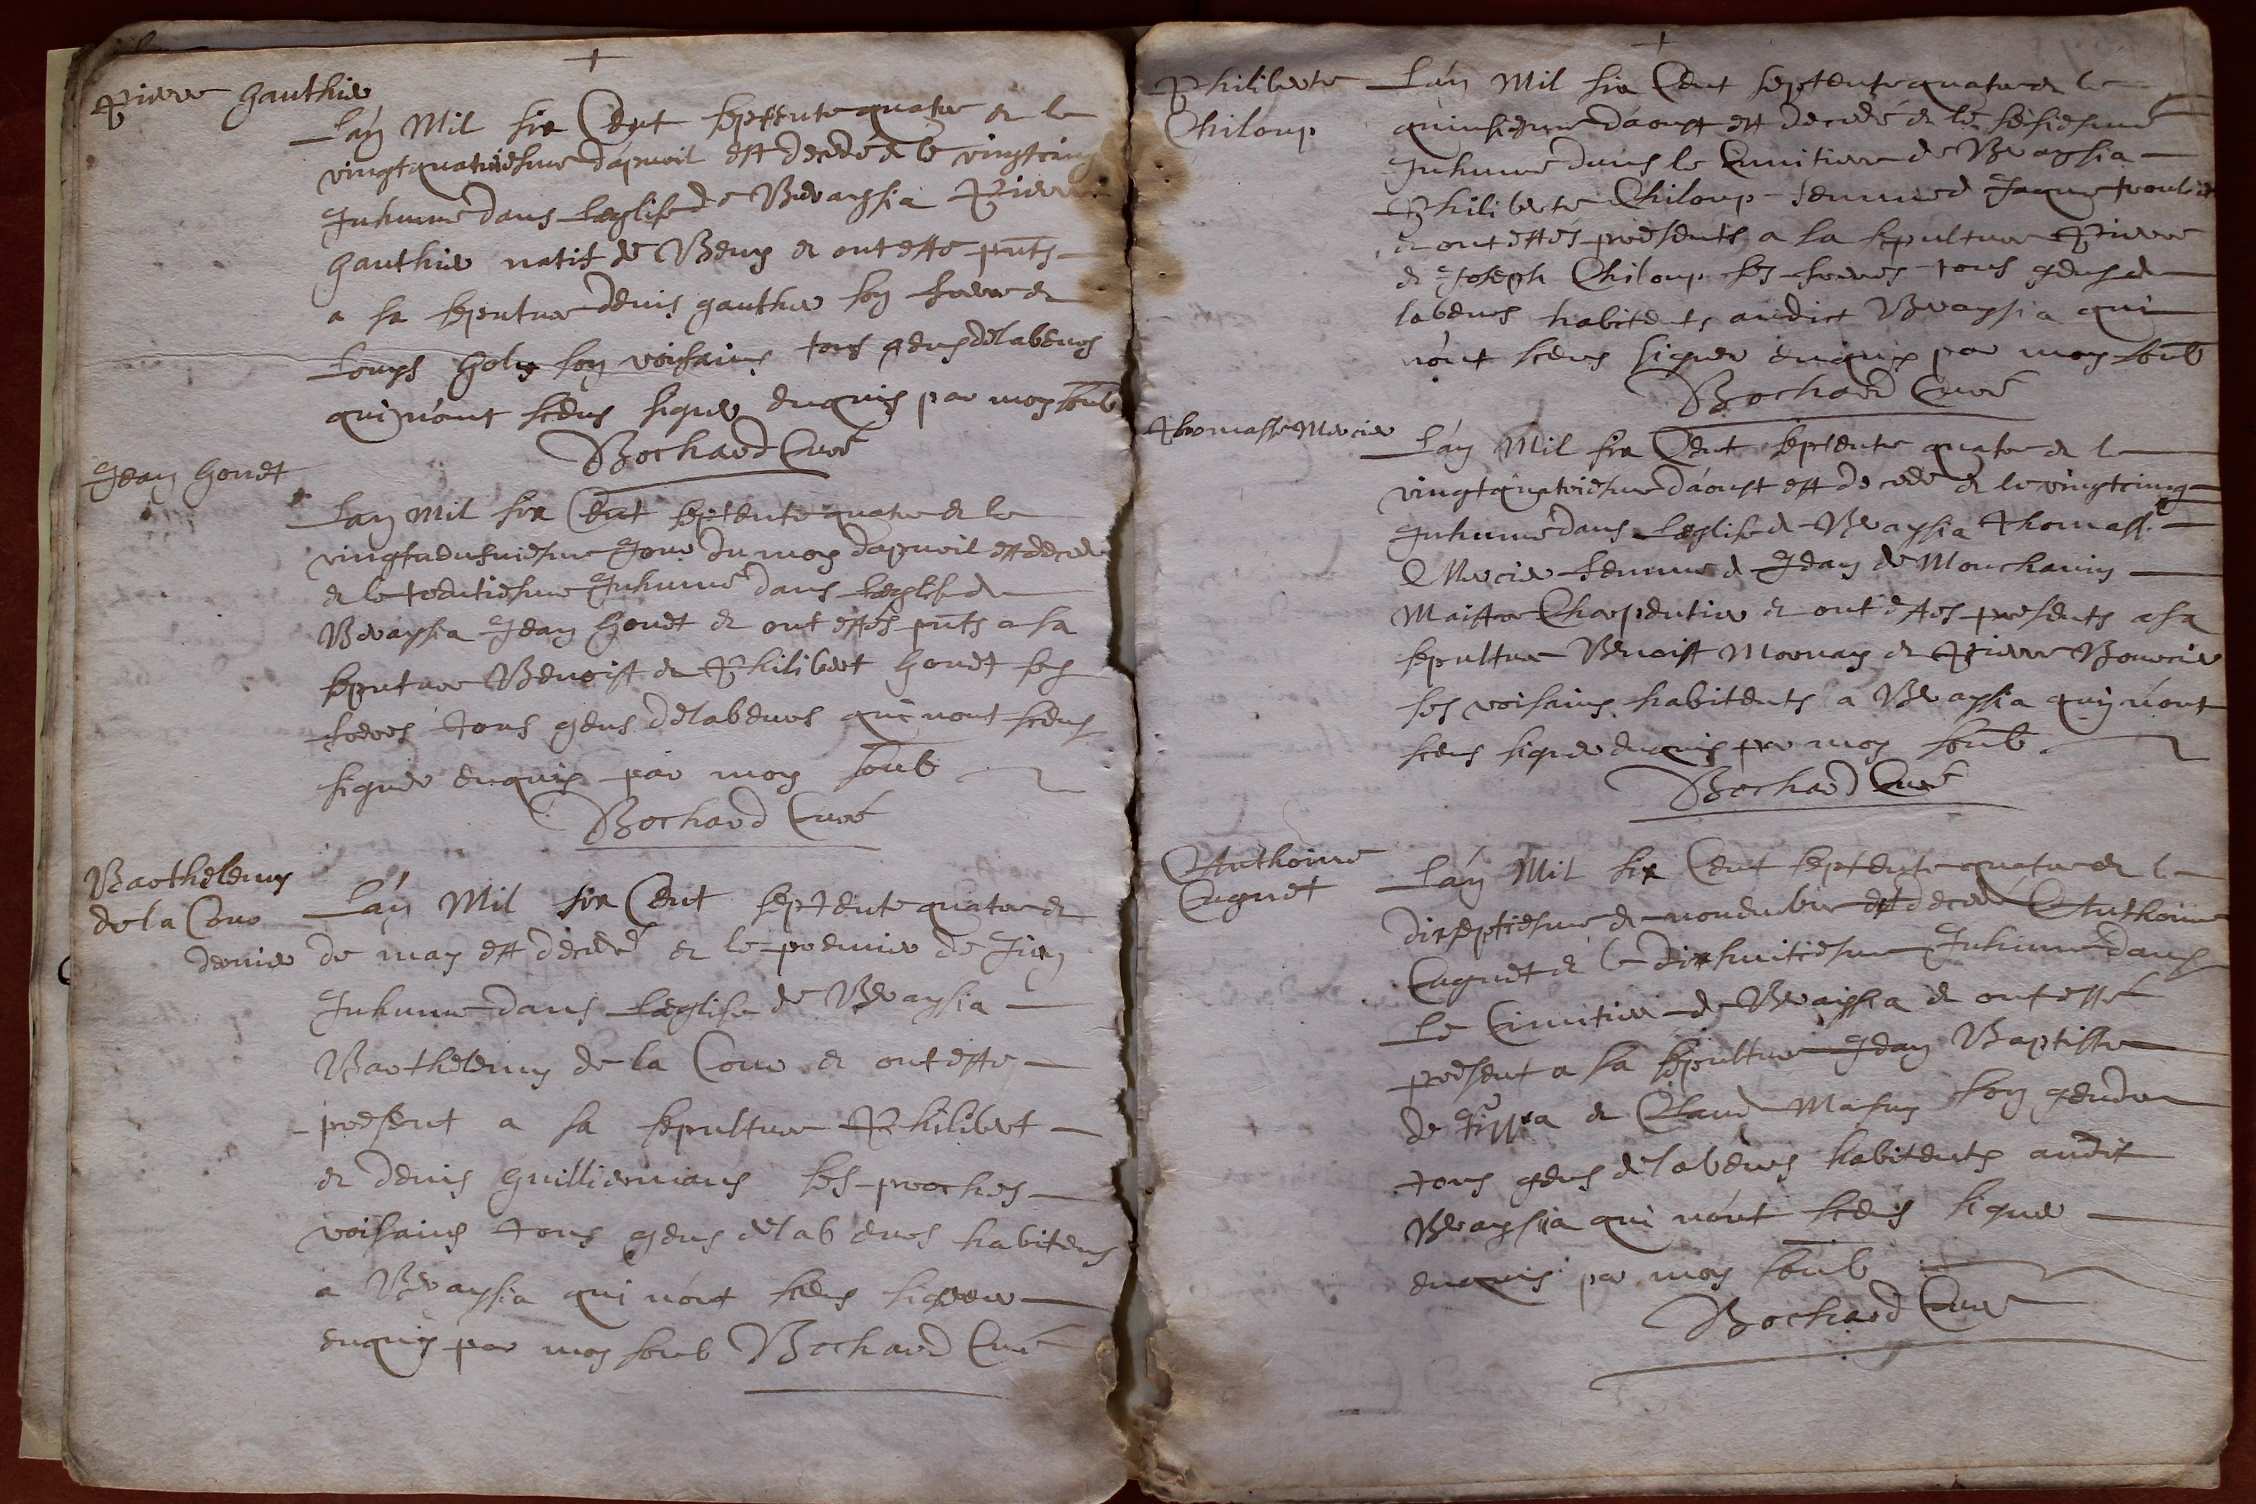 Pierre Gauthier
L'an Mil six Cent septente quatre et le
vingtquatriesme d'apvril est decedé et le vingtcinq
Inhumé dans l'eglise de Bevaysia Pierre
Gauthier natif de Beny et ont esté pnts
a sa sepulture Denis gauthier son frere et
Louys Goly son voisains tous gens de labeurs
qui n'ont sceus signer enquis par moy soub
Bochard Curé
Jean Gonet
L'an Mil six Cent septente quatre et le
vingtneufuiesme Jour du moy d'apvril est decedé
et le trentiesme Inhumé dans l'eglise de
Bevaysia Jean Gonet et ont estés pnts a sa
sepulture Benoist et Philibert Gonet ses
freres tous gens de labeurs qui nont sceus
signer enquis par moy soub
Bochard Curé
Barthelemy
de la Cour
L'an Mil six Cent septente quatre et
dernier de may est decedé et le premier de Juin
Inhumé dans l'eglise de Bevaysia
Barthelemy de la Cour et ont esté
present a sa sepulture Philibert
et Denis guilliermans ses proches
voisains tous gens de labeurs habitens
a Bevaysia qui n'ont sceus signer
enquis par moy soub Bochard Curé
Philiberte
Chiloup
L'an Mil six Cent septente quatre et le
quinsiesme d'aoust est decedé et le sesiesme
Inhumé dans le Cimitiere de Bevaysia
Philiberte Chiloup femme d Jaque
et ont estés presents a sa sepulture Pierre
et Joseph Chiloup ses freres tous gens de
labeurs habitents audict Bevaysia qui
n'ont sceus signer enquis par moy soub
Bochard Curé
Thomasse Mercier
L'an Mil six Cent septente quatre et le
vingtquatriesme d'aoust est decedé et le vingtcinq
Inhumé dans l'eglise de Bevaysia Thomasse
Mercier femme d Jean de Monchanin
Maistre Charpentier et ont estés presents a sa
sepulture Benoist Mornay et Pierre Bourcier
ses voisains habitents a Bevaysia quy n'ont
sceus signer enquis par moy soub
Bochard Curé
Anthoine
Cagnet
L'an Mil six Cent septente quatre et le
dixseptiesme de novembre est decedé Anthoine
Cagnet et le dixhuitiesme Inhumé dans
Le Cimitier de Bevaysia et ont esté
present a sa sepulture Jean Baptiste
de et Claud Masuy son gendre
tous gens de labeurs habitents audit
Bevaysia qui n'ont sceus signer
enquis par moy soub
Bochard Curé